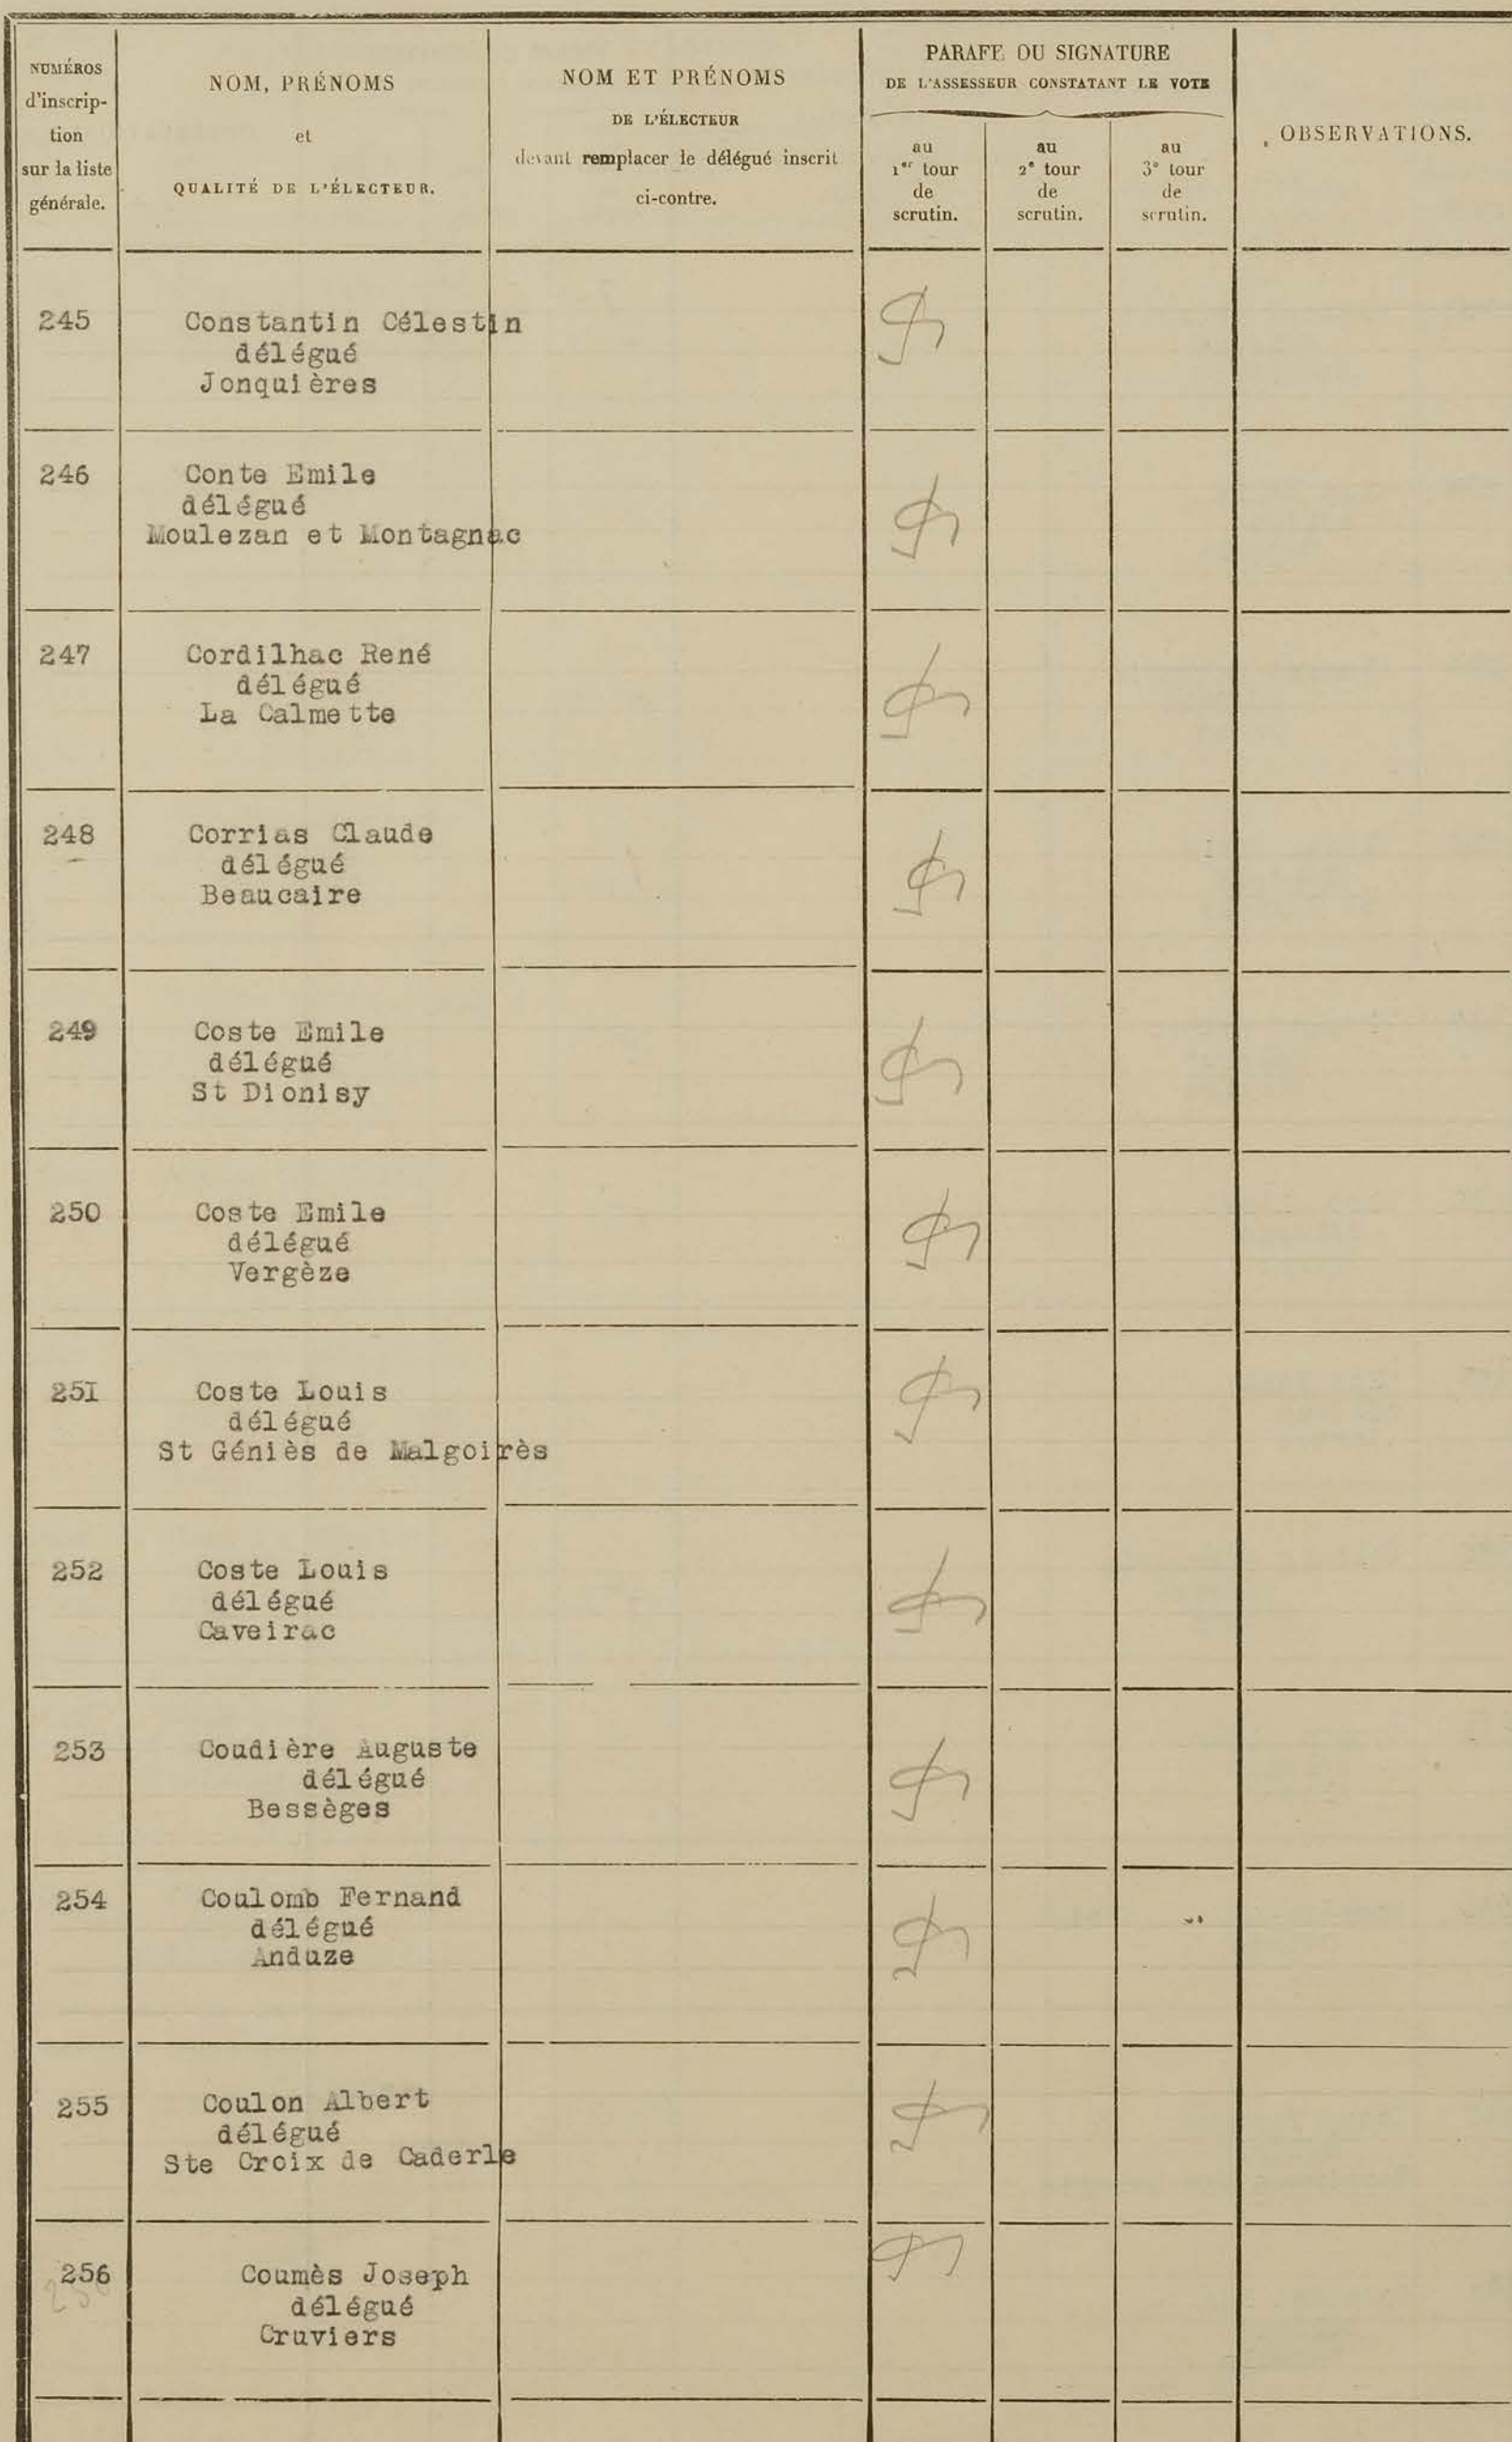 NUMÉROS
d'inscrip-
tion
sur la liste
générale.
NOM, PRÉNOMS
et
QUALITÉ DE L'ÉLECTEUR.
NOM ET PRÉNOMS
DE L'ÉLECTEUR
devant remplacer le délégué inscrit
ci-contre.
PARAFE OU SIGNATURE
DE L'ASSESSEUR CONSTATANT LE VOTE
au
1er tour
de
scrutin.
au
2e tour
de
scrutin.
au
3e tour
de
scrutin.
OBSERVATIONS.
245
Constantin Célestin
délégué
Jonquières
246
Conte Emile
délégué
Moulezan et Montagnac
247
Cordilhac René
délégué
La Calmette
248
Corrias Claude
délégué
Beaucaire
249
Coste Emile
délégué
St Dionisy
250
Coste Emile
délégué
Vergèze
25I
Coste Louis
délégué
St Géniès de Malgoirès
252
Coste Louis
délégué
Caveirac
253
Coudière Auguste
délégué
Bessèges
254
Coulomb Fernand
délégué
Anduze
255
Coulon Albert
délégué
Ste Croix de Caderle
256
Coumès Joseph
délégué
Cruviers